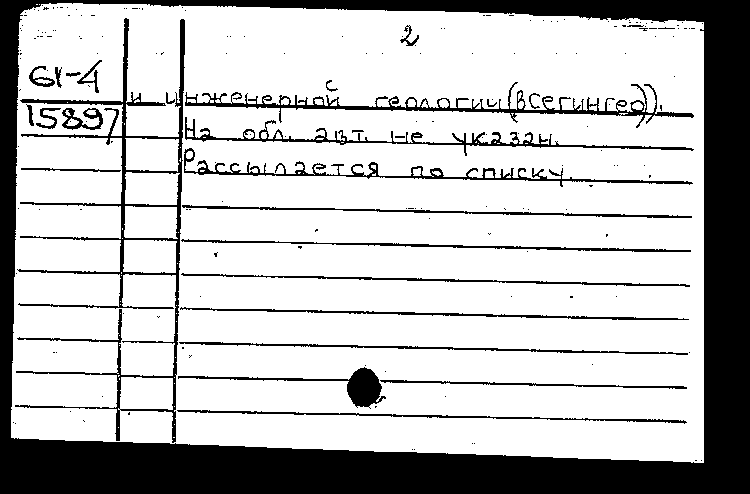 2
61-4
15897
и инженерной геологии (ВСЕГИНГЕО)).
На обл. авт. не указан.
Рассылается по списку.